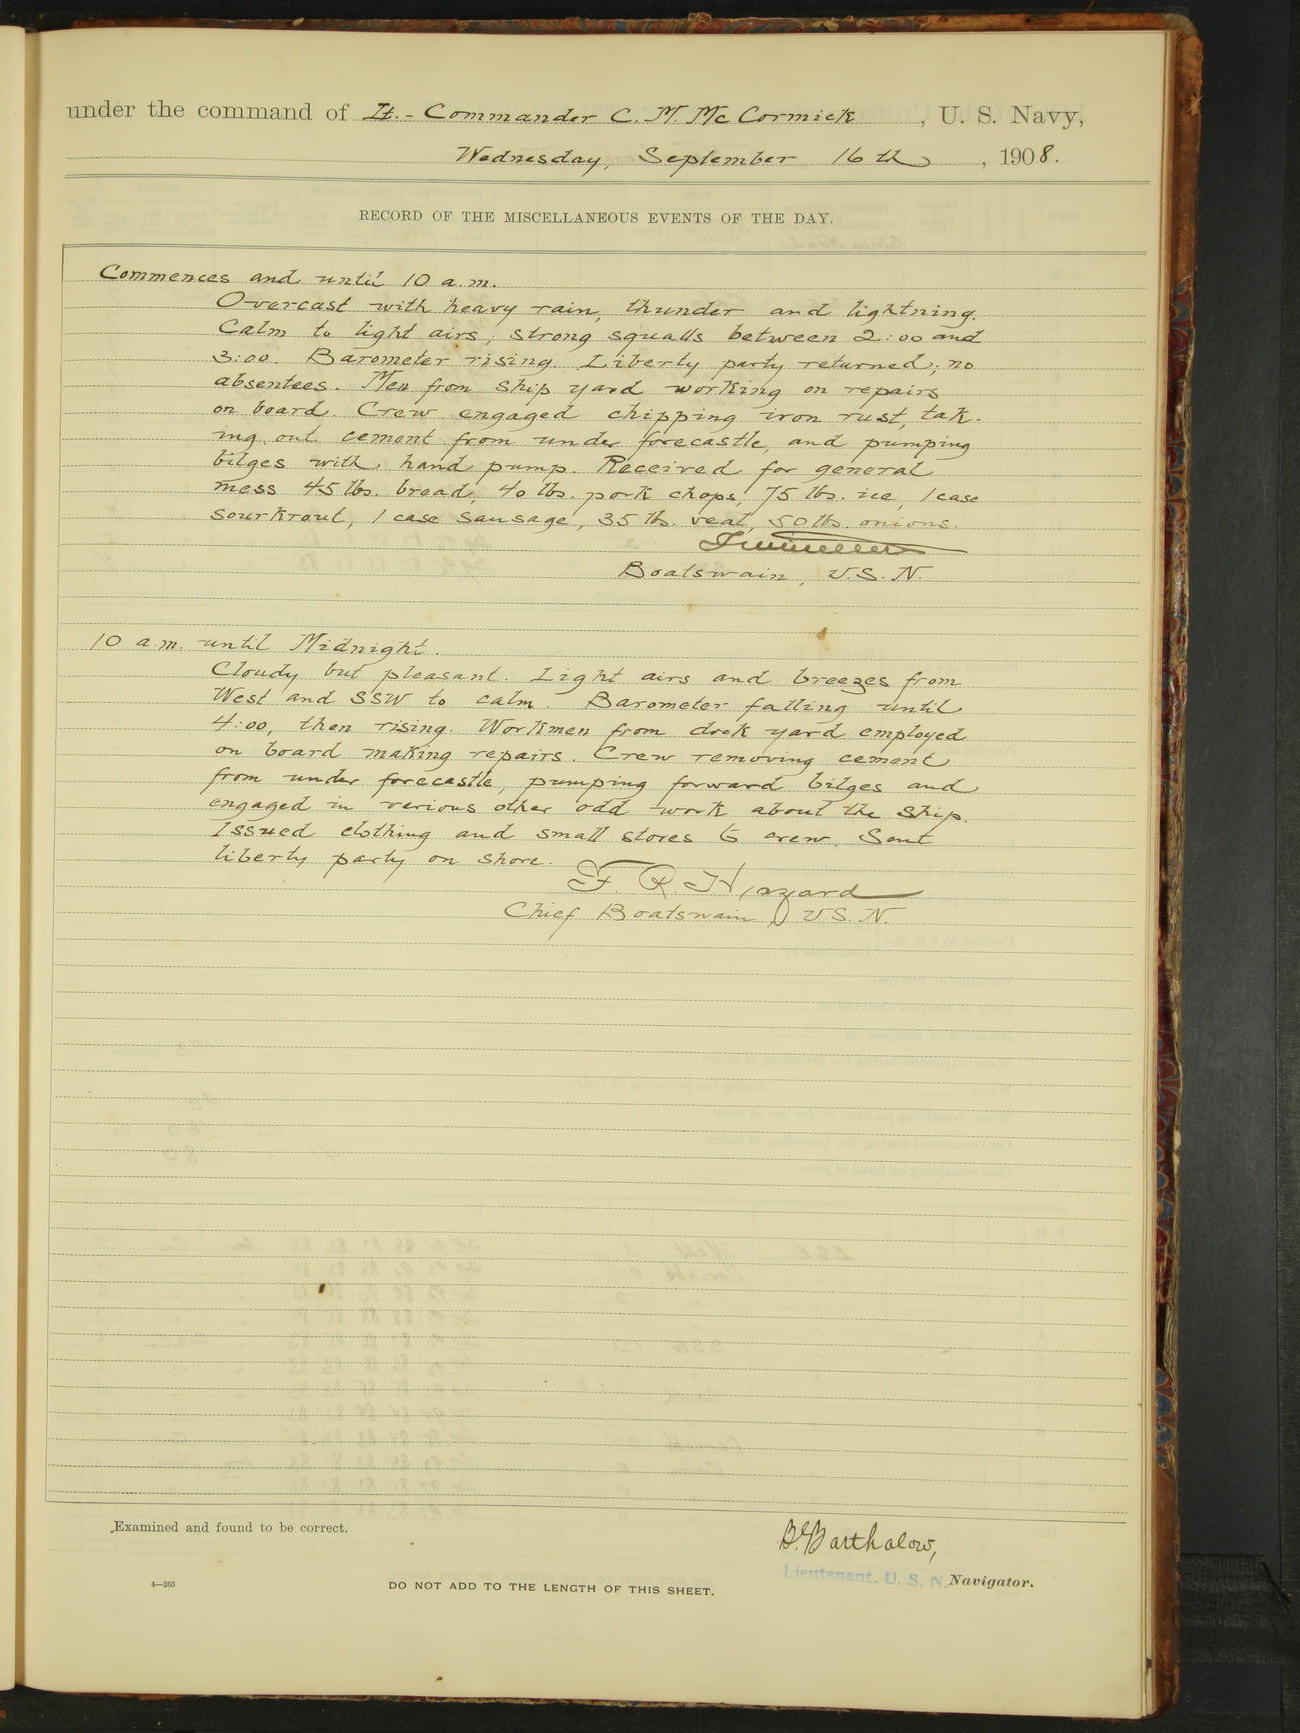 under the command of Lt.-Commander C. M. McCormick, U. S. Navy,
Wednesday, September 16th, 1908.
RECORD OF THE MISCELLANEOUS EVENTS OF THE DAY.
Commences and until 10 a.m.
Overcast with heavy rain, thunder and lightning.
Calm to light airs; strong squalls between 2:00 and
3:00. Barometer rising. Liberty party returned; no
absentees. Men from ship yard working on repairs
on board. Crew engaged chipping iron rust, tak-
ing out cement from under forecastle, and pumping
bilges with hand pump. Received for general
mess 45 lbs. bread, 40 lbs. pork chops, 75 lbs. ice, 1 case
sourkrout, 1 case sausage, 35 lb. veal, 50 lbs. onions.
Boatswain, U.S.N.
10 a.m. until Midnight.
Cloudy but pleasant. Light airs and breezes from
West and SSW to calm. Barometer falling until
4:00, then rising. Workmen from dock yard employed
on board making repairs. Crew removing cement
from under forecastle, pumping forward bilges and
engaged in various other odd work about the ship.
Issued clothing and small stores to crew. Sent
liberty party on shore.
F. R. Hazard
Chief Boatswain, U.S.N.
Examined and found to be correct.
B. Barthalow,
Lieutenant. U. S. N. Navigator.
4—265
DO NOT ADD TO THE LENGTH OF THIS SHEET.